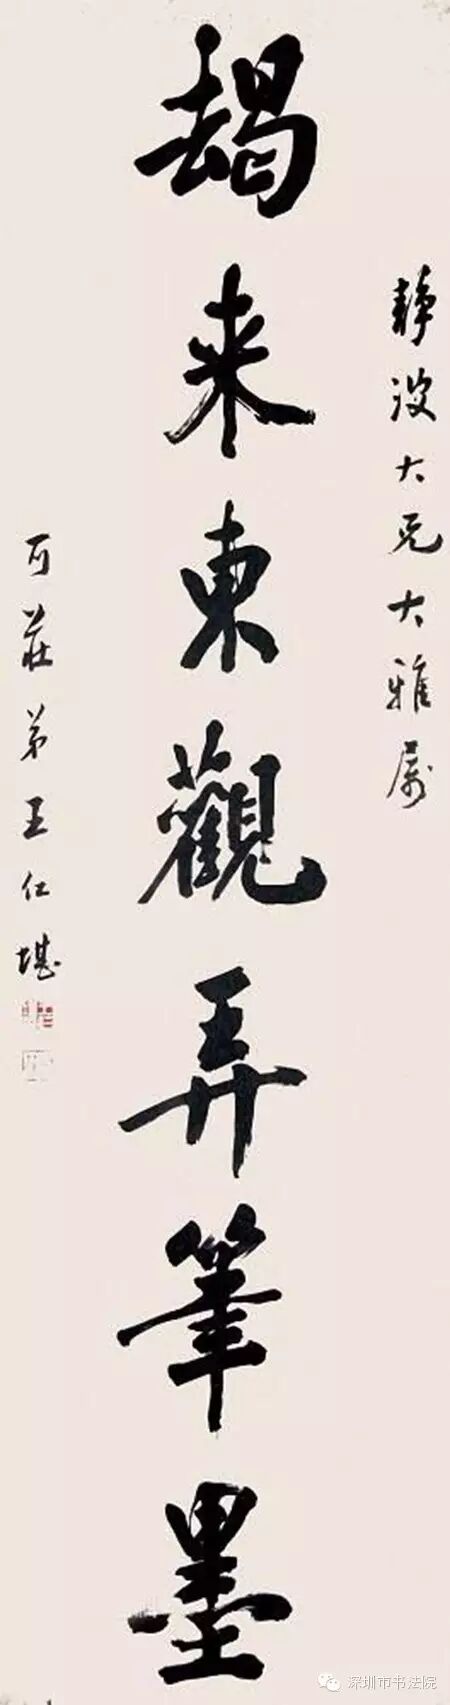 静波大兄大雅属
朅来東觀弄筆墨
可莊弟王仁堪
深圳市书法院